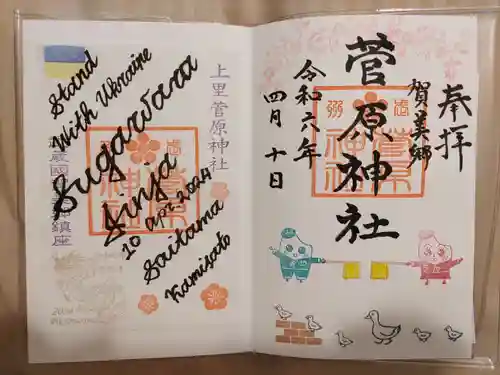 奉拝
賀美郷
菅原神社
令和六年
四月十日
上里菅原神社
Stand
With Ukraine
Sugawara
Jinja
10 apr 2024
Saitama
Kamisato
鎮座